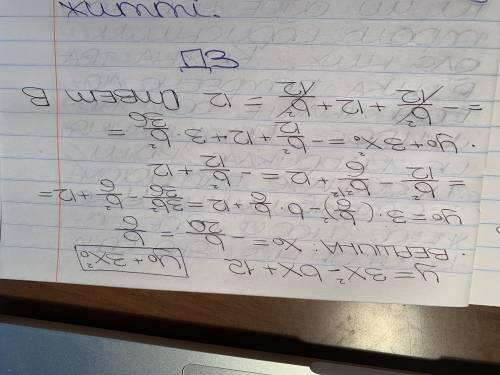 y = 3x² - bx + 12 y₀ + 3x₀²
• ВЕРШИНА: x₀ = -b/2a = b/6
y₀ = 3·(b/6)² - b·b/6 + 12 = 3b²/36 - b²/6 + 12 =
= b²/12 - b²/6 + 12 = -b²/12 + 12
• y₀ + 3x₀ = -b²/12 + 12 + 3·b²/36 =
= -b²/12 + 12 + b²/12 = 12 Ответ В
ДЗ
житті.